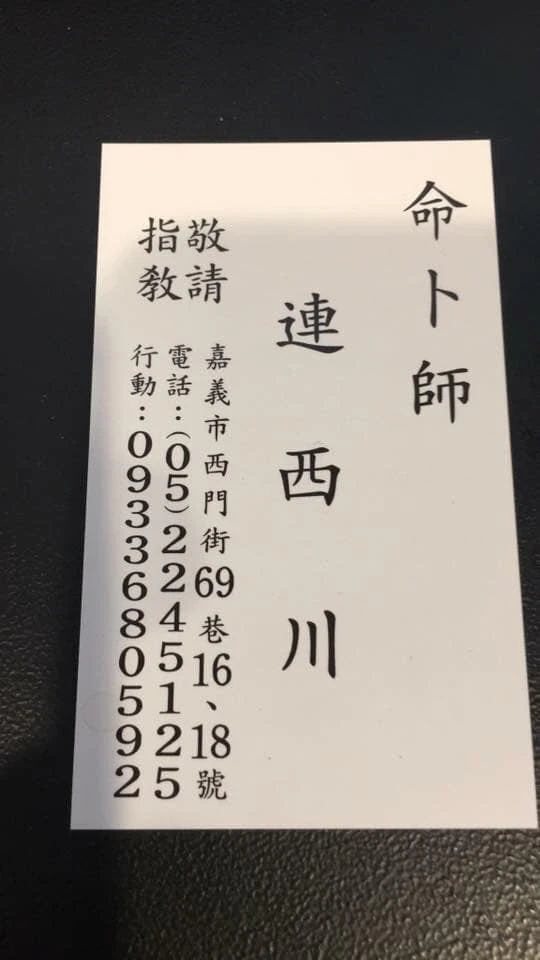 命卜師
連西川
敬請
指教
嘉義市西門街69巷16、18號
電話：(05)2245125
行動：0933680592